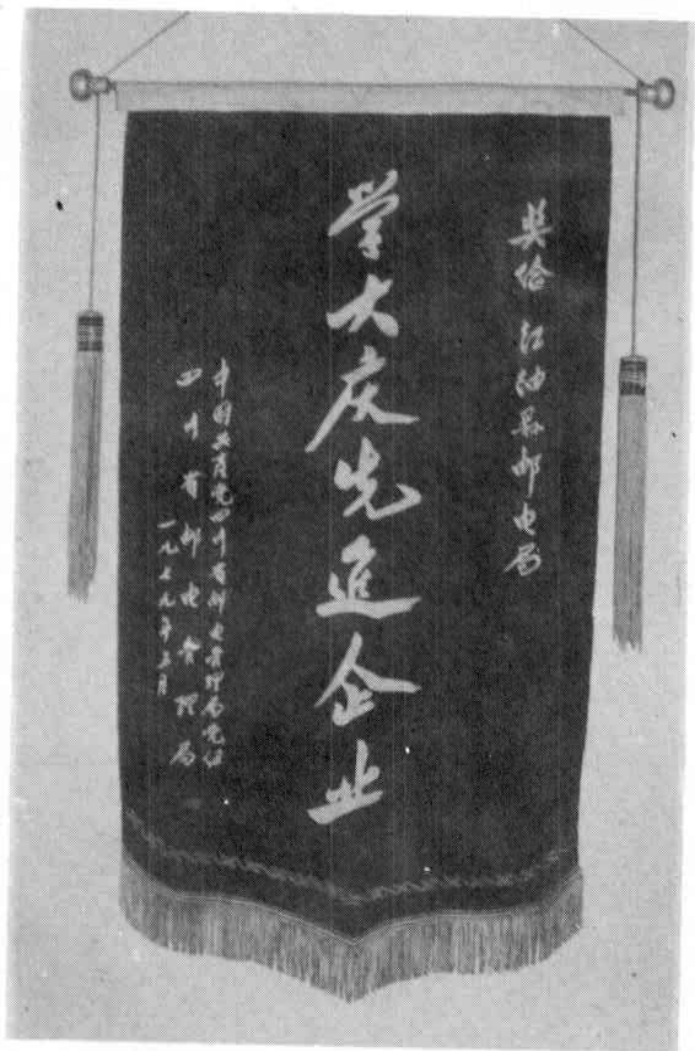 奖给 江油县邮电局
学大庆先进企业
中国共产党四川省邮电管理局党组
四川省邮电管理局
一九七九年五月